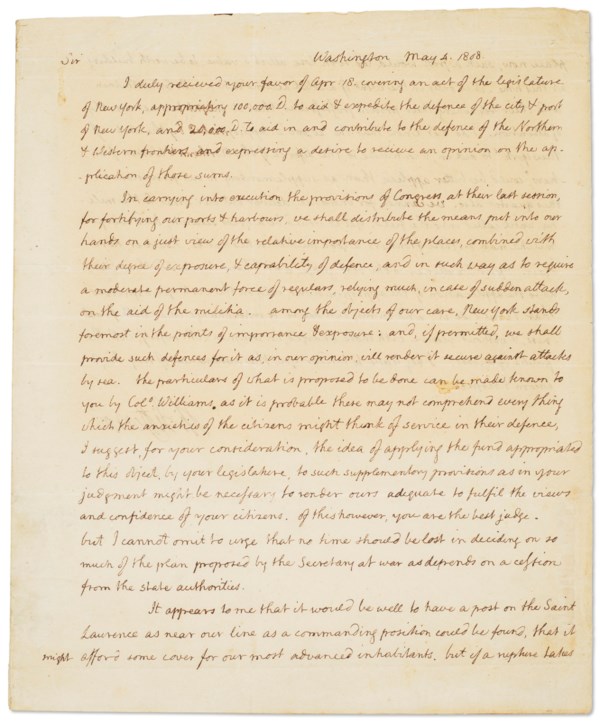 Sir Washington May 4. 1808
I duly recieved your favor of Apr. 18. covering an act of the legislature
of New York, appropriating 100,000. D. to aid & expedite the defence of the city & port
of New York, and 20,000. D. to aid in and contribute to the defence of the Northern
& Western frontiers, and expressing a desire to recieve an opinion on the ap-
-plication of those sums.
In carrying into execution the provisions of Congress, at their last session,
for fortifying our ports & harbours, we shall distribute the means put into our
hands on a just view of the relative importance of the places, combined with
their degree of exposure, & capability of defence, and in such way as to require
a moderate permanent force of regulars, relying much, in case of sudden attack,
on the aid of the militia. among the objects of our care, New York stands
foremost in the points of importance & exposure: and, if permitted, we shall
provide such defences for it as, in our opinion, will render it secure against attacks
by sea. the particulars of what is proposed to be done can be made known to
you by Colo. Williams. as it is probable these may not comprehend every thing
which the anxieties of the citizens might think of service in their defence,
I suggest, for your consideration, the idea of applying the fund appropriated
to this object, by your legislature, to such supplementary provisions as in your
judgment might be necessary to render ours adequate to fulfil the views
and confidence of your citizens. of this however, you are the best judge.
but I cannot omit to urge that no time should be lost in deciding on so
much of the plan proposed by the Secretary at war as depends on a cession
from the state authorities.
It appears to me that it would be well to have a post on the Saint
Lawrence as near our line as a commanding position could be found, that it
might afford some cover for our most advanced inhabitants. but if a rupture takes